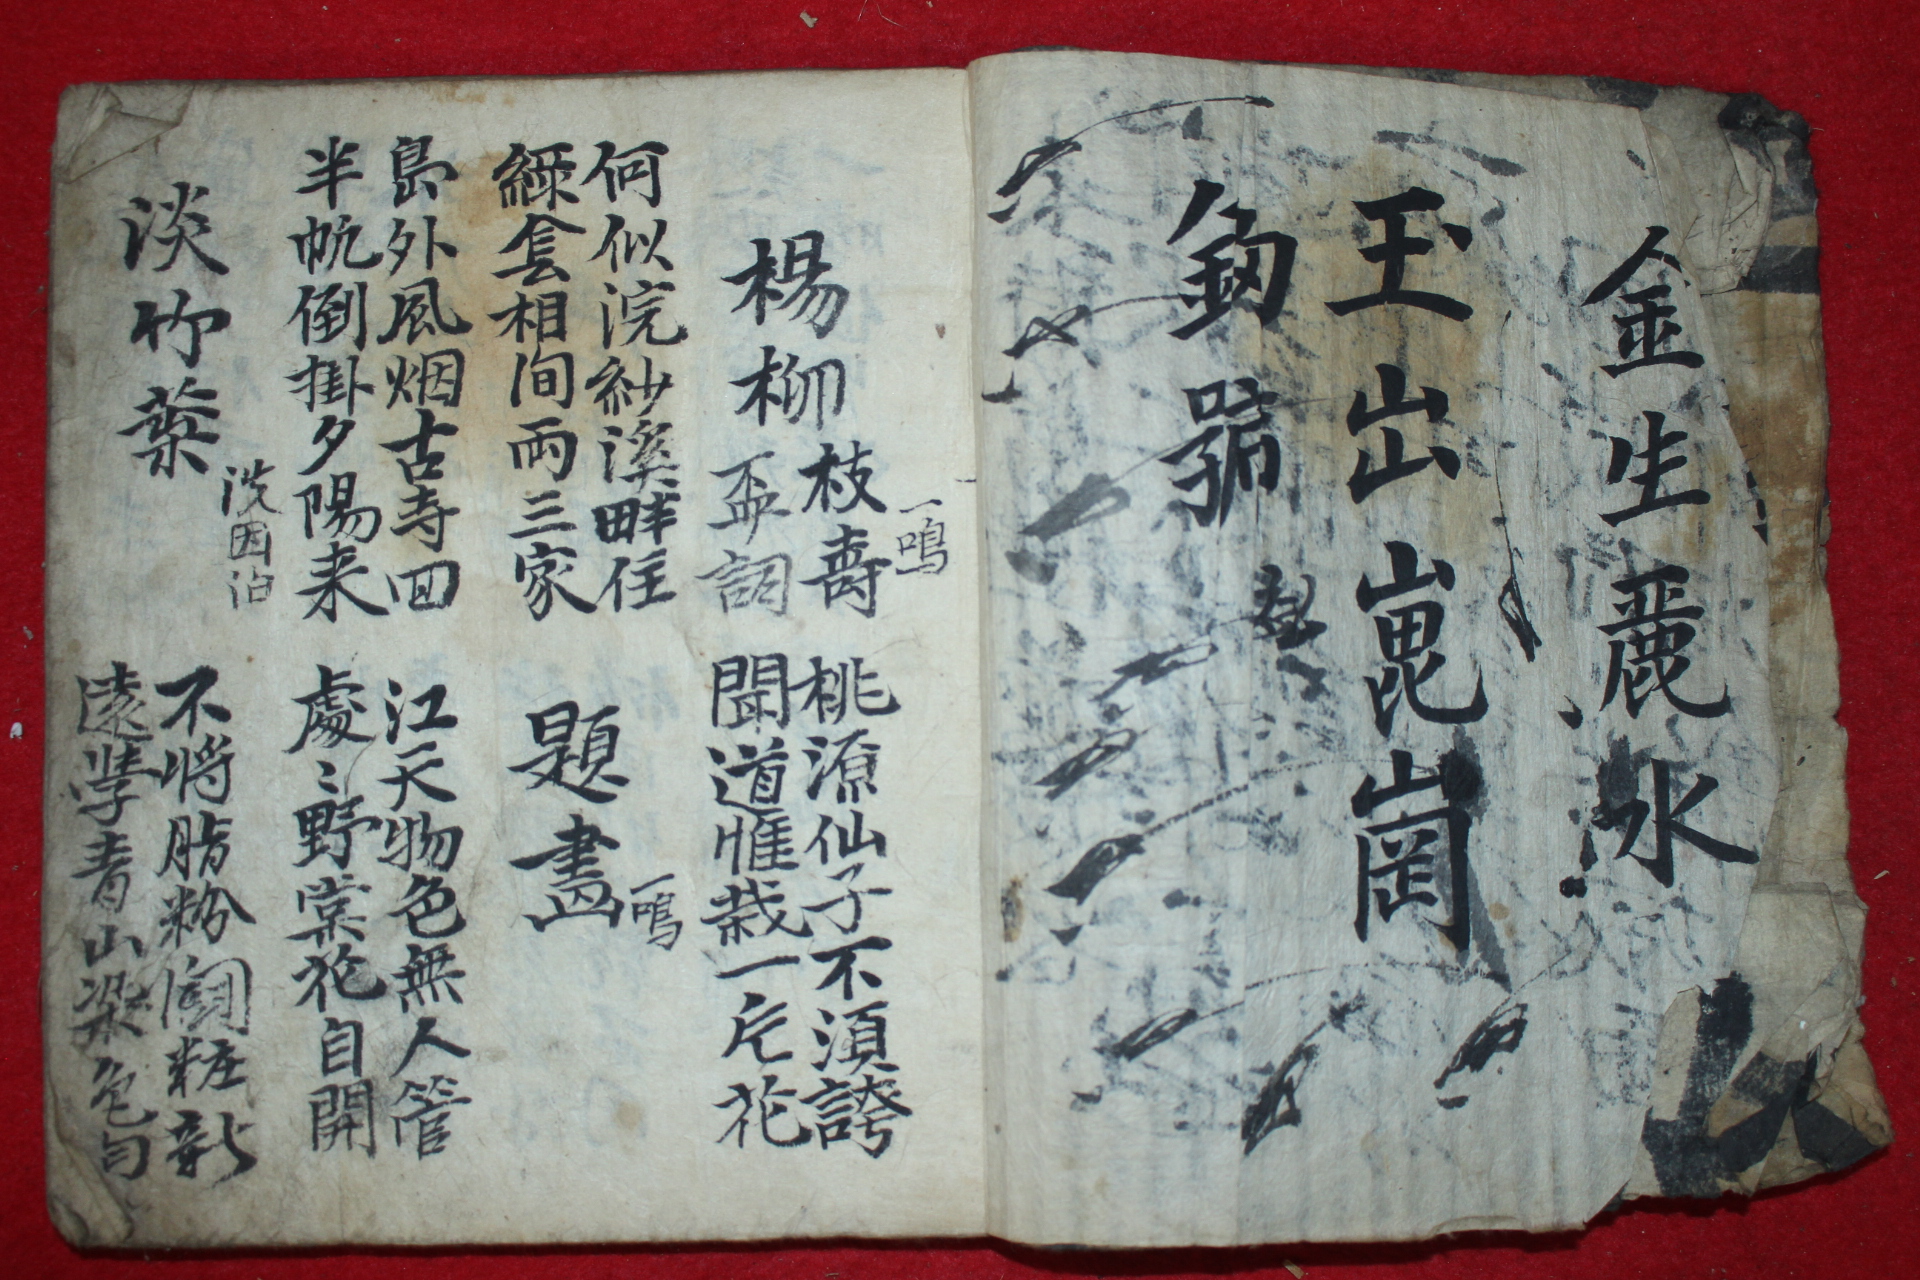 金生麗水
玉出崑崗
釼號
楊柳枝壽
盃詞
一鳴
桃源仙子不須誇
聞道惟栽一片花
何似浣紗溪畔住
綠侌相间両三家
題畫
一鳴
島外風烟古寺回
半帆倒掛夕陽来
江天物色無人管
處〻野棠花自開
淡竹葉
不将脂粉鬪粧新
遠學青山染色匀